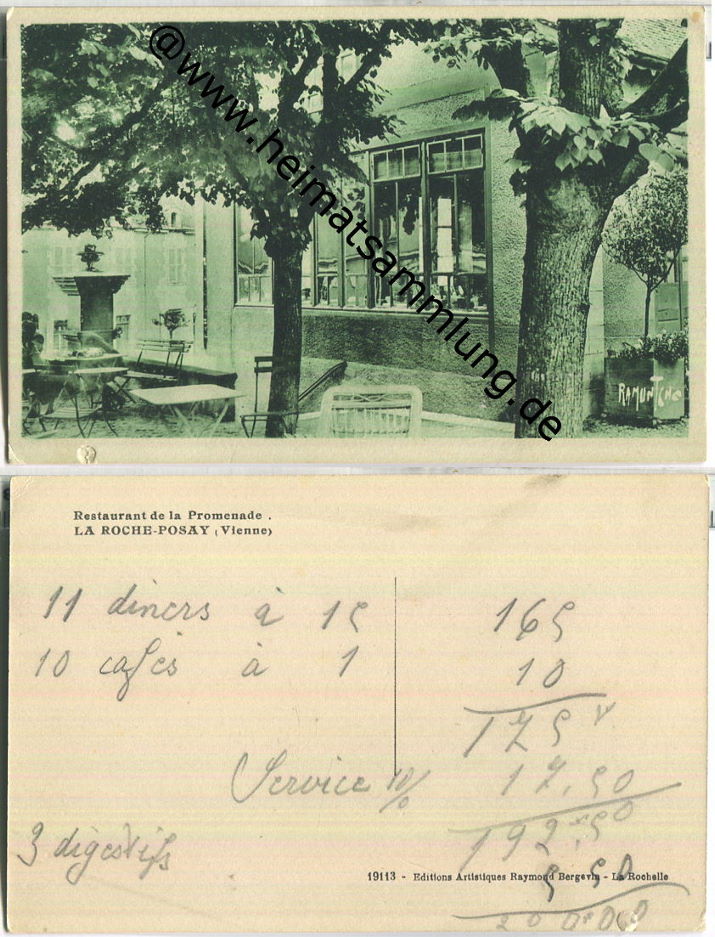 @www.heimatsammlung.de
RAMUNTCHO
Restaurant de la Promenade.
LA ROCHE-POSAY (Vienne)
11 diners à 15 165
10 cafés à 1 10
175
Service 10% 17,50
192,50
3 digestifs
19113 - Editions Artistiques Raymond Bergevin - La Rochelle